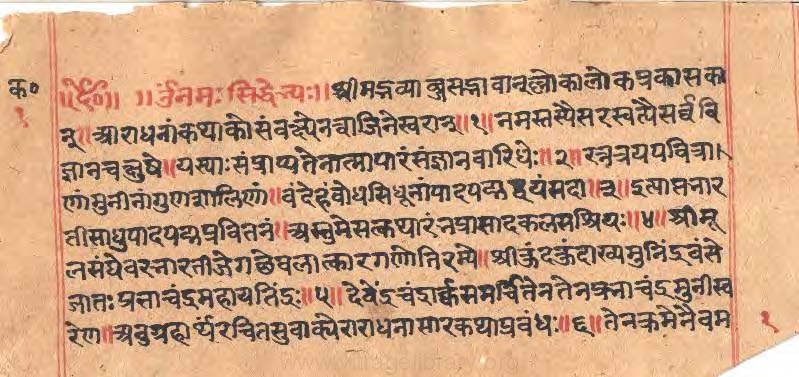 क० ॥ॐ॥ ॥ ॐनमः सिद्धेभ्यः॥ श्रीमद्भव्याब्जसद्भावान्लोकालोकप्रकासका
१ न्॥ आराधनाकथाकोसं वक्ष्ये नत्वा जिनेस्वरान्॥१॥ नमस्तस्यै सरस्वत्यै सर्ववि
ज्ञानचक्षुषे॥ यस्याः संप्राप्यतेनात्मा पारं संज्ञानवारिधेः॥२॥ रत्नत्रयपवित्रा।
णां मुनीनां गुणशालिणां॥ वंदेहं बोधसिंधूनां पादपद्मद्वयं मदा॥३॥ इत्याप्तनार
तीसाधुपादपद्मप्रवितनं॥ अस्तु मे सत्कथारंनप्रासादकलसश्रियः॥४॥ श्रीमू
लसंघे वरनारतीजे गछे बलात्कारगणेतिरम्ये॥ श्रीकुंदकुंदाख्यमुनिंद्रवंसे
जातः प्रनाचंद्रमहायतिंद्रः॥५॥ देवेंद्रचंद्रार्कसमर्चितेन तेन प्रनाचंद्रमुनीस्व
रेण॥ अनुग्रहार्थं रचितसुवाक्यैराराधनासारकथाप्रबंधः॥६॥ तेन क्रमेनैवम
१